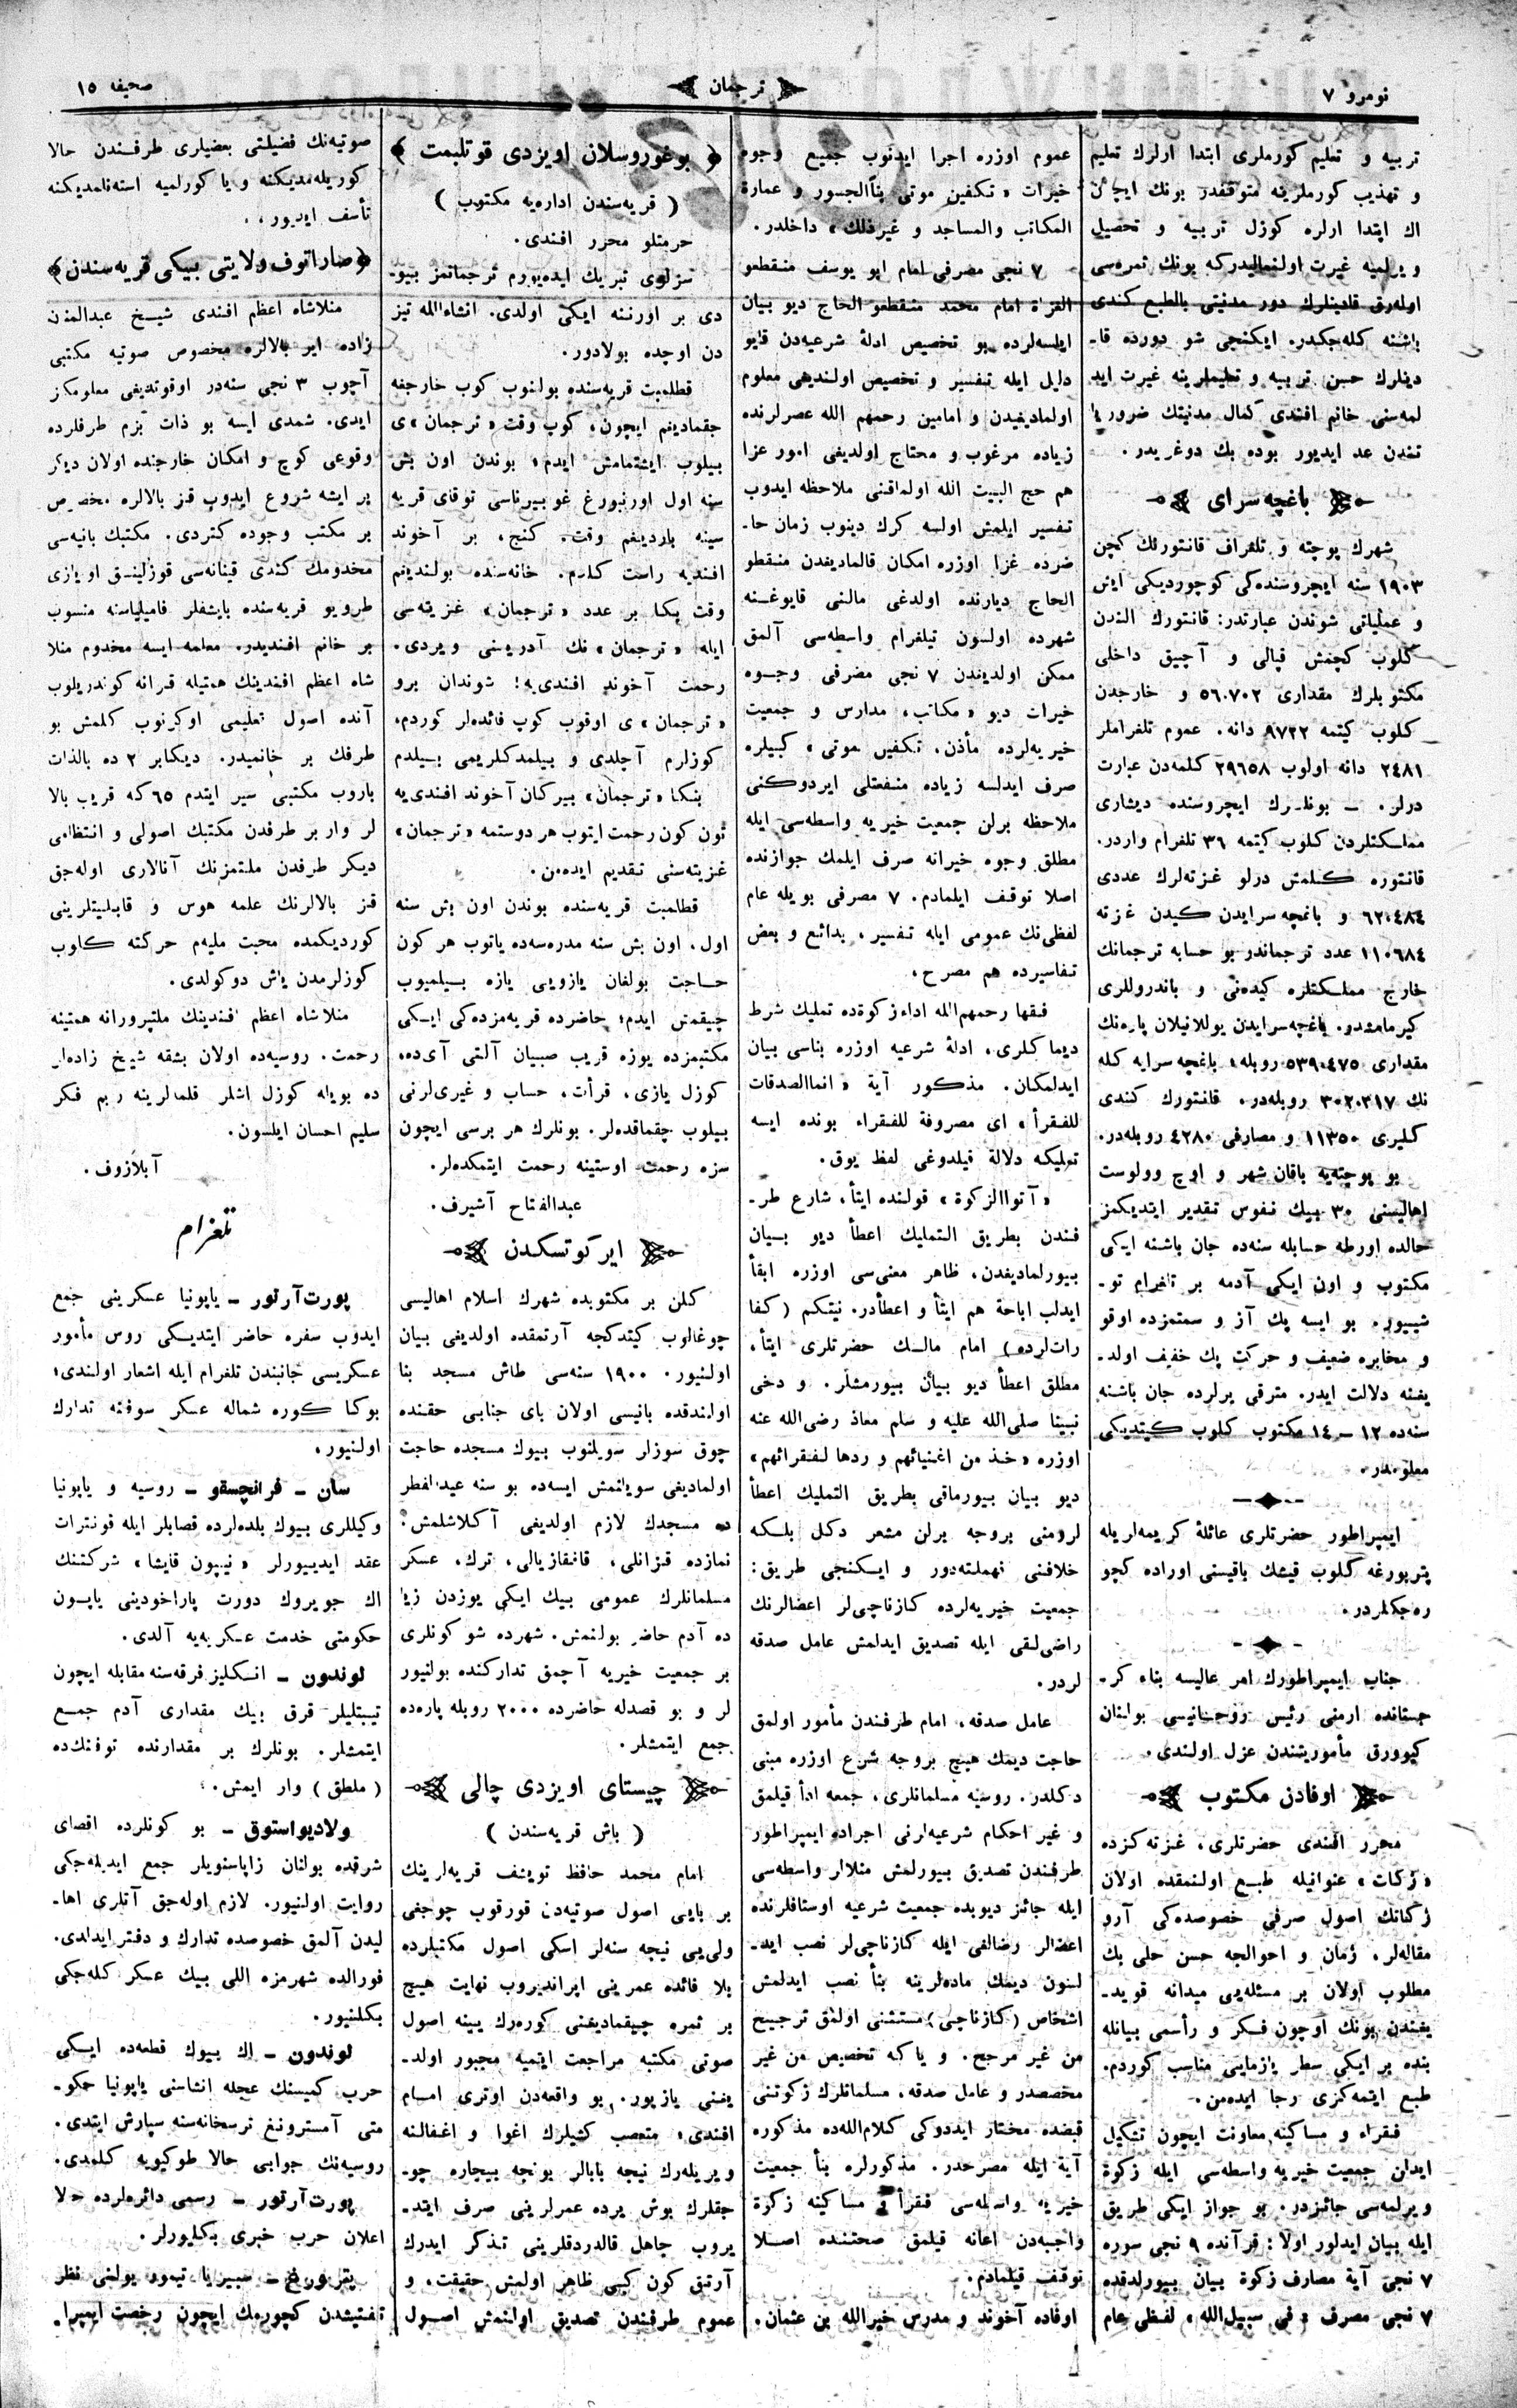 نومرو ٧
ترجمان
صحیفه ١٥
تربیه و تعلیم کورملری ابتدا ارلرك تعلیم
و تهذیب کورملرینه متوقفدر بونك ایچون
اك ابتدا ارلره کوزل تربیه و تحصیل
ویرلمیه غیرت اولنمالیدرکه بونك ثمره‌سی
اوله‌رق قادینلرك دور مدنیتی بالطبع کندی
باشنه کله‌جکدر. ایکنجی شو دورده قا۔
دینلرك حسن تربیه و تعلیملرینه غیرت اید
لمه‌سنی خانم افندی کمال مدنیتك ضروریا
تندن عد ایدیور بوده بك دوغریدر.
باغچه سرای
شهرك پوچته و تلغراف قانتورینك کچن
١٩٠٣ سنه ایچروسنده‌کی کوچوردیکی ایش
و عملیاتی شوندن عبارتدر: قانتورك الندن
کلوب کچمش قپالی و آچیق داخلی
مکتوبلرك مقداری ٥٦،٧٠٢ و خارجدن
کلوب کیتمه ٩٧٢٢ دانه. عموم تلغراملر
٢٤٨١ دانه اولوب ٢٩٦٥٨ کلمه‌دن عبارت
درلر. — بونلرك ایچروسنده دیشاری
مملکتلردن کلوب کیتمه ٣٦ تلغرام واردر.
قانتوره کلمش درلو غزته‌لرك عددی
٦٢،٤٨٤ و باغچه سرایدن کیدن غزته
١١٠٦٨٤ عدد ترجماندر بو حسابه ترجمانك
خارج مملکتلره کیده‌نی و باندروللری
کیرمامشدر. باغچه سرایدن یوللانیلان پاره‌نك
مقداری ٥٣٩،٤٧٥ روبله، باغچه سرایه کله
نك ٣٠٢،٣١٧ روبله‌در. قانتورك کندی
کلیری ١١٣٥٠ و مصارفی ٤٢٨٠ روبله‌در.
بو پوچته‌یه باقان شهر و اوچ وولوست
اهالیسنی ٣٠ بیك نفوس تقدیر ایتدیکمز
حالده اورطه حسابله سنه‌ده جان باشنه ایکی
مکتوب و اون ایکی آدمه بر تلغرام تو۔
شیور. بو ایسه پك آز و سمتمزده اوقو
و مخابره ضعیف و حرکت پك خفیف اولد۔
یغنه دلالت ایدر. مترقی یرلرده جان باشنه
سنه‌ده ١٢–١٤ مکتوب کلوب کیتدیکی
معلومدر.
ایمپراطور حضرتلری عائلهٔ کریمه‌لریله
پتربورغه کلوب قیشك باقیسنی اوراده کچو
ره‌جکلردر.
جناب ایمپراطورك امر عالیسه بناء کر۔
جستانده ارمنی رئیس روحانیسی بولنان
کیوورق مأموریتندن عزل اولندی.
اوفادن مکتوب
محرر افندی حضرتلری، غزته کزده
«زکات» عنوانیله طبع اولنمقده اولان
زکاتك اصول صرفی خصوصده‌کی آرو
مقاله‌لر، زمان و احوالجه حسن حلی بك
مطلوب اولان بر مسئله‌یی میدانه قوید۔
یغندن بونك اوچون فکر و رأسمی بیانله
بنده بر ایکی سطر یازمایی مناسب کوردم.
طبع ایتمه‌کزی رجا ایده‌من.
فقراء و مساکینه معاونت ایچون تشکیل
ایدان جمعیت خیریه واسطه‌سی ایله زکوة
ویرلمه‌سی جائزدر. بو جواز ایکی طریق
ایله بیان ایدلور اولا: قرآنده ٩ نجی سوره
٧ نجی آیة مصارف زکوة بیان بیورلدقده
٧ نجی مصرف «فی سبیل‌الله» لفظی عام
عموم اوزره اجرا ایدنوب جمیع وجوه
خیرات «تکفین موتی بناالجسور و عمارة
المکاتب والمساجد و غیرذلك» داخلدر.
٧ نجی مصرفی امام ابو یوسف منقطعو
الغزاة امام محمد منقطعو الحاج دیو بیان
ایلسه‌لرده بو تخصیص ادلهٔ شرعیه‌دن قایو
دلیل ایله تفسیر و تخصیص اولندیمی معلوم
اولمادیغیدن و امامین رحمهم الله عصرلرنده
زیاده مرغوب و محتاج اولدیغی امور عزا
هم حج البیت الله اولماقنی ملاحظه ایدوب
تفسیر ایلمش اولسه کرك دینوب زمان حا۔
ضرده غزا اوزره امکان قالمادیغدن منقطو
الحاج دیارنده اولدغی مالنی قایوغنه
شهرده اولسون تیلغرام واسطه‌سی آلمق
ممکن اولدیندن ٧ نجی مضرفی وجوه
خیرات دیو «مکاتب، مدارس و جمعیت
خیریه‌لرده مأذن، تکفین موتی» کبیلره
صرف ایدلسه زیاده منفعتلی ایردوکنی
ملاحظه برلن جمعیت خیریه واسطه‌سی ایله
مطلق وجوه خیرانه صرف ایلمك جوازنده
اصلا توقف ایلمادم. ٧ مصرفی بویله عام
لفظی‌نك عمومی ایله تفسیر، بدائع و بعض
تفاسیرده هم مصرح،
فقها رحمهم‌الله اداء زکوةده تملیك شرط
دیماکلری، ادلهٔ شرعیه اوزره بناسی بیان
ایدلمکان. مذکور آیة «انماالصدقات
للفقرأ» ای مصروفة للفقراء بونده ایسه
تملیکه دلالة قیلدوغی لفظ یوق.
«آتواالزکوة» قولنده ایتأ، شارع طر۔
فندن بطریق التملیك اعطأ دیو بیان
بیورلمادیغدن، ظاهر معنی‌سی اوزره ابقأ
ایدلب اباحة هم ایتأ و اعطأدر. نیتکم (کفا
رات‌لرده) امام مالك حضرتلری ایتأ،
مطلق اعطأ دیو بیان بیورمشلر. و دخی
نبینا صلی‌الله علیه و سلم معاذ رضی‌الله عنه
اوزره «خذ من اغنیائهم و ردها لفقرائهم»
دیو بیان بیورماقی بطریق التملیك اعطأ
لرومنی بروجه برلن مشعر دکل بلکه
خلافنی نهمله‌دور و ایکنجی طریق:
جمعیت خیریه‌لرده کازناچی‌لر اعضالرنك
راضی‌لقی ایله تصدیق ایدلمش عامل صدقه
لردر.
عامل صدقه، امام طرفندن مأمور اولمق
حاجت دیمك هیچ بروجه شرع اوزره مبنی
دکلدر. روسیه مسلمانلری، جمعه ادأ قیلمق
و غیر احکام شرعیه‌لرنی اجراده ایمپراطور
طرفندن تصدیق بیورلمش منلالر واسطه‌سی
ایله جائز دیوبده جمعیت شرعیه اوستافلرنده
اعضالر رضالقی ایله کازناچی‌لر نصب اید۔
لسون دیمك ماده‌لرینه بنأ نصب ایدلمش
اشخاص (کازناچی) مستثنی اولمق ترجیح
من غیر مرجح. و یا که تخصیص من غیر
مخصصدر و عامل صدقه، مسلمانلرك زکوتنی
قبضده مختار ایددوکی کلام‌الله‌ده مذکوره
آیة ایله مصرحدر. مذکورلره بنأ جمعیت
خیریه واسطه‌سی فقرأ و مساکینه زکوة
واجبه‌دن اعانه قیلمق صحتنده اصلا
توقف قیلمادم.
اوفاده آخوند و مدرس خیرالله بن عثمان.
بوغوروسلان اویزدی قوتلبمت
( قریه‌سندن اداره‌یه مکتوب )
حرمتلو محرر افندی.
سزلوی تبریك ایده‌یورم ترجمانمز بیو۔
دی بر اورننه ایکی اولدی. انشاءالله تیز
دن اوچده بولادور.
قطلمبت قریه‌سنده بولنوب کوب خارجغه
چقمادیغم ایچون، کوب وقت «ترجمان»ی
بیلوب ایشتمامش ایدم؛ بوندن اون بش
سنه اول اورنبورغ غوبیرناسی توقای قریه
سینه باردیغم وقت. کنج، بر آخوند
افندیه راست کلدم. خانه‌سنده بولندیغم
وقت بکا بر عدد «ترجمان» غزیته‌سی
ایله «ترجمان»نك آدریسنی ویردی.
رحمت آخوند افندی‌یه! شوندان برو
«ترجمان»ی اوقوب کوپ فائده‌لر کوردم،
کوزلرم آچلدی و بیلمدکلریمی بیلدم
بنکا «ترجمان» بیرکان آخوند افندی‌یه
تون کون رحمت ایتوب هر دوستمه «ترجمان»
غزیته‌سنی تقدیم ایده‌من.
قطلمبت قریه‌سنده بوندن اون بش سنه
اول، اون بش سنه مدرسه‌ده یاتوب هر کون
حاجت بولغان یازویی یازه بیلمیوب
چیقمش ایدم؛ حاضرده قریه‌مزده‌کی ایکی
مکتبمزده یوزه قریب صبیان آلتی آی‌ده،
کوزل یازی، قرأت، حساب و غیری‌لرنی
بیلوب چقماقده‌لر. بونلرك هر برسی ایچون
سزه رحمت اوستینه رحمت ایتمکده‌لر.
عبدالفتاح آشیرف.
ایرکوتسکدن
کلن بر مکتوبده شهرك اسلام اهالیسی
چوغالوب کیتدکجه آرتمقده اولدیغی بیان
اولنیور. ١٩٠٠ سنه‌سی طاش مسجد بنا
اولندقده بانیسی اولان بای جنابی حقنده
چوق سوزلر سویلنوب بیوك مسجده حاجت
اولمادیغی سویلنمش ایسه‌ده بو سنه عیدالفطر
ده مسجدك لازم اولدیغی آکلاشلمش.
نمازده قزانلی، قافقازیالی، ترك، عسکر
مسلمانلرك عمومی بیك ایکی یوزدن زیا
ده آدم حاضر بولنمش. شهرده شو کونلری
بر جمعیت خیریه آچمق تدارکنده بولنیور
لر و بو قصدله حاضرده ٢٠٠٠ روبله پاره‌ده
جمع ایتمشلر.
چیستای اویزدی چالی
( باش قریه‌سندن )
امام محمد حافظ توینف قریه‌لرینك
بر بایی اصول صوتیه‌دن قورقوب چوجغی
ولی‌یی نیجه سنه‌لر اسکی اصول مکتبلرده
بلا فائده عمرینی ایراندیروب نهایت هیچ
بر ثمره چیقمادیغنی کوره‌رك یینه اصول
صوتی مکتبه مراجعت ایتمیه مجبور اولد۔
یغنی یازیور. بو واقعه‌دن اوتری امام
افندی؛ متعصب کشیلرك اغوا و اغفالنه
ویریله‌رك نیچه بابالر بونجه بیچاره چو۔
جقلرك بوش یرده عمرلرینی صرف ایتد۔
یروب جاهل قالدردقلرینی تذکر ایدرك
آرتق کون کبی ظاهر اولمش حقیقت، و
عموم طرفندن تصدیق اولنمش اصول
صوتیه‌نك فضیلتی بعضیلری طرفندن حالا
کوریله‌مدیکنه و یا کورلمیه استه‌نلمدیکنه
تأسف ایدیور،.
صاراتوف ولایتی بیکی قریه‌سندن
منلاشاه اعظم افندی شیخ عبدالمنان
زاده ایر بالالره مخصوص صوتیه مکتبی
آچوب ٣ نجی سنه‌در اوقوتدیغی معلومکز
ایدی. شمدی ایسه بو ذات بزم طرفلرده
وقوعی کوچ و امکان خارجنده اولان دیکر
بر ایشه شروع ایدوب قز بالالره مخصوص
بر مکتب وجوده کتردی. مکتبك بانیه‌سی
مخدومك کندی قینانه‌سی قوزلینسق اویازی
طرویو قریه‌سنده بایشفلر فامیلیاسنه منسوب
بر خانم افندیدر. معلمه ایسه مخدوم منلا
شاه اعظم افندینك همتیله قزانه کوندریلوب
آنده اصول تعلیمی اوکرنوب کلمش بو
طرفك بر خانمیدر. دیکابر ٢ ده بالذات
باروب مکتبی سیر ایتدم ٦٥ که قریب بالا
لر وار بر طرفدن مکتبك اصولی و انتظامی
دیکر طرفدن ملتمزنك آنالاری اوله‌جق
قز بالالرنك علمه هوس و قابلیتلرینی
کوردیکمده محبت ملیه‌م حرکته کلوب
کوزلرمدن یاش دوکولدی.
منلا شاه اعظم افندینك ملتپرورانه همتینه
رحمت. روسیه‌ده اولان بشقه شیخ زاده‌لر
ده بویله کوزل اشلر قلمالرینه ربم فکر
سلیم احسان ایلسون.
آبلازوف.
تلغرام
پورت‌آرتور — یاپونیا عسکرینی جمع
ایدوب سفره حاضر ایتدیکی روس مأمور
عسکریسی جانبندن تلغرام ایله اشعار اولندی؛
بوکا کوره شماله عسکر سوقنه تدارك
اولنیور،
سان — فرانچسقو — روسیه و یاپونیا
وکیللری بیوك بلده‌لرده قصابلر ایله قونترات
عقد ایدییورلر «نیپون قایشا» شرکتنك
اك جویروك دورت پاراخودینی یاپون
حکومتی خدمت عسکریه‌یه آلدی.
لوندون — انکلیز فرقه‌سنه مقابله ایچون
تیبتلیلر قرق بیك مقداری آدم جمع
ایتمشلر. بونلرك بر مقدارنده توفنك‌ده
( ملطق ) وار ایمش.
ولادیواستوق — بو کونلرده اقصای
شرقده بولنان زاپاسنویلر جمع ایدیله‌جکی
روایت اولنیور. لازم اوله‌جق آتلری اها۔
لیدن آلمق خصوصده تدارك و دفتر ایدلدی.
فورالده شهرمزه اللی بیك عسکر کله‌جکی
بکلنیور.
لوندون — اك بیوك قطعه‌ده ایکی
حرب کمیسنك عجله انشاسنی یاپونیا حکو۔
متی آمسترونغ ترسخانه‌سنه سپارش ایتدی.
روسیه‌نك جوابی حالا طوکیویه کلمدی.
پورت‌آرتور — رسمی دائره‌لرده حالا
اعلان حرب خبری بکلیورلر.
پتربورغ — سیبریا تیمور یولنی نظر
تفتیشدن کچورمك ایچون رخصت ایمپرا۔